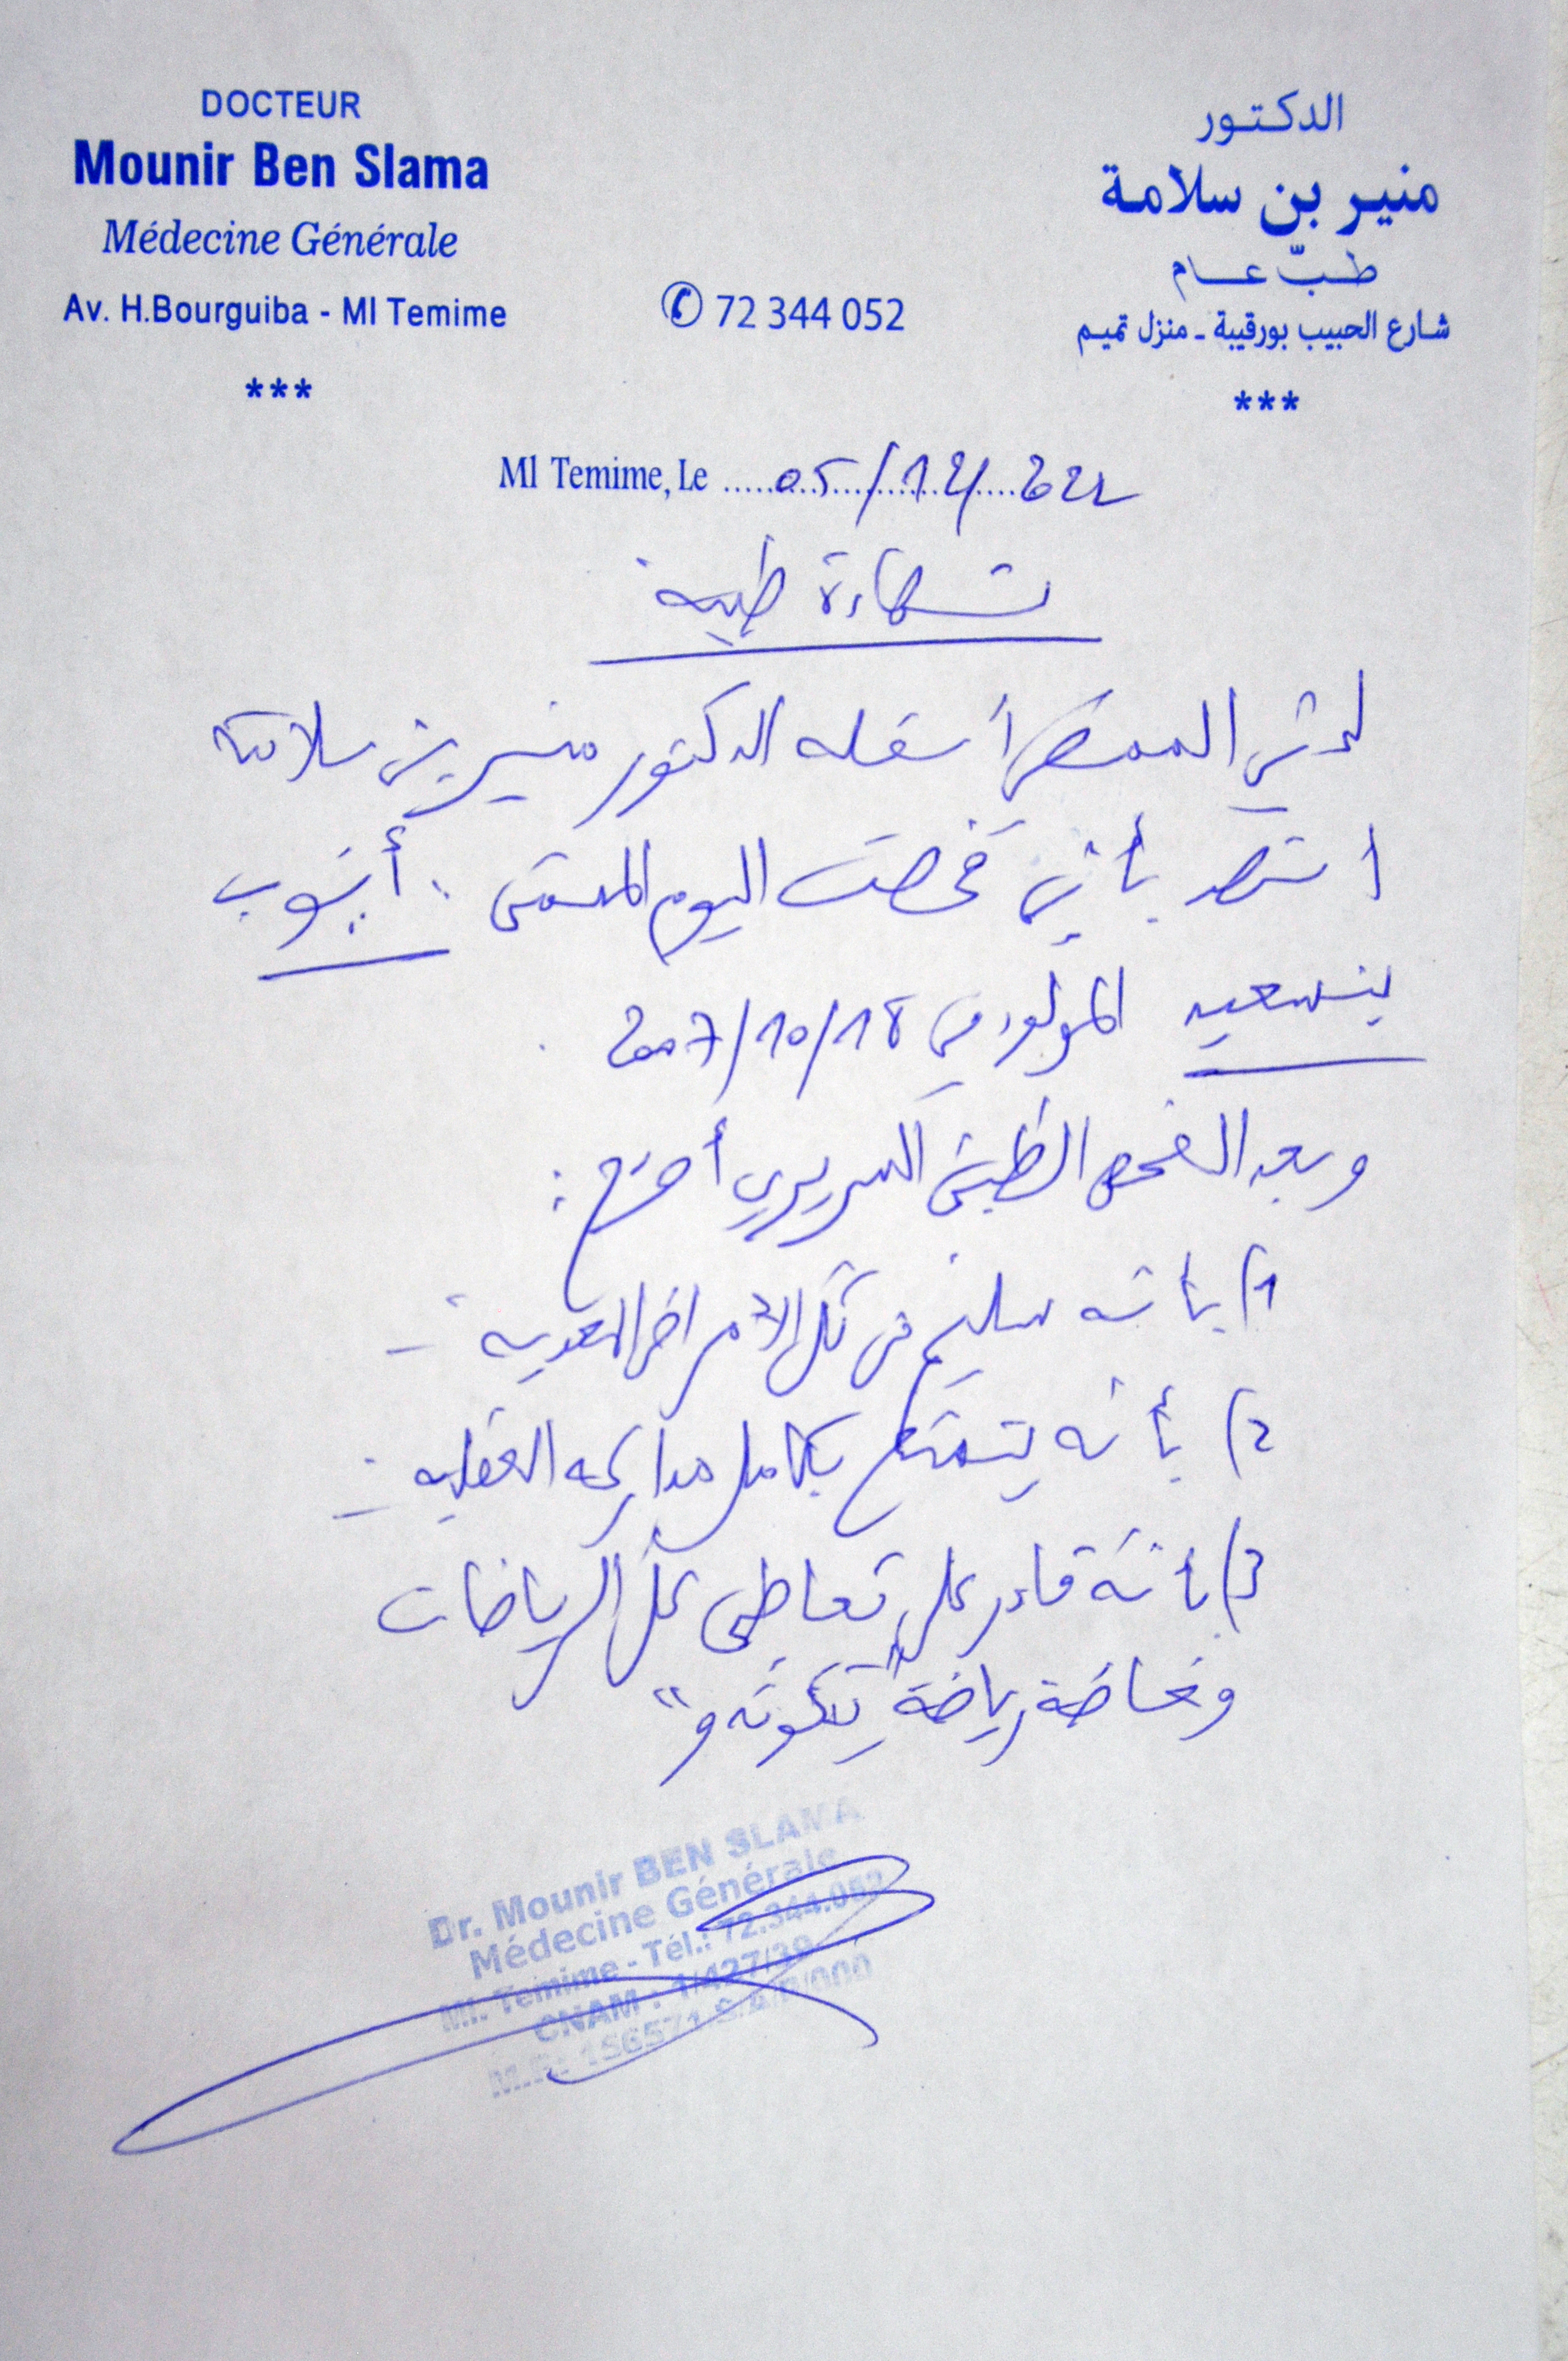 DOCTEUR
Mounir Ben Slama
Médecine Générale
Av. H.Bourguiba - Ml Temime
***
✆ 72 344 052
الدكتور
منير بن سلامة
طبّ عام
شارع الحبيب بورقيبة ـ منزل تميم
***
Ml Temime, Le 05/12/2022
شهادة طبية
إني الممضي أسفله الدكتور منير بن سلامة
أشهد بأني فحصت اليوم المسمى : أيوب
بنسعيد المولود في 18/10/2007
وبعد الفحص الطبي السريري أصرح :
1) بأنه سليم من كل الأمراض المعدية -
2) بأنه يتمتع بكامل مداركه العقلية -
3) بأنه قادر على تعاطي كل الرياضات
وخاصة رياضة "تكوندو"
Dr. Mounir BEN SLAMA
Médecine Générale
Ml. Temime - Tél.: 72.344.052
CNAM : 1/427/39